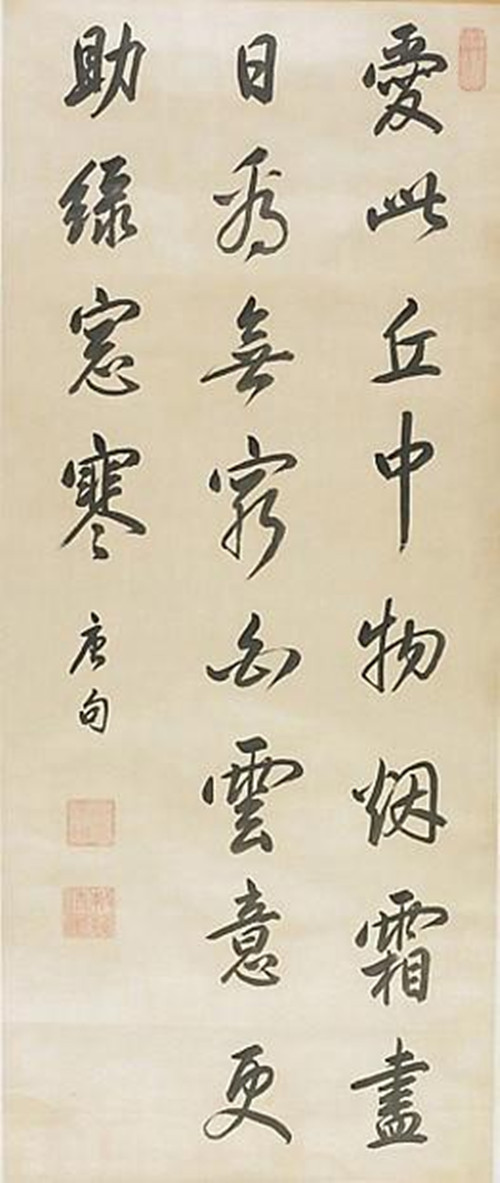 愛此丘中物烟霜盡
日看無窮白雲意更
助緑窓寒
唐句